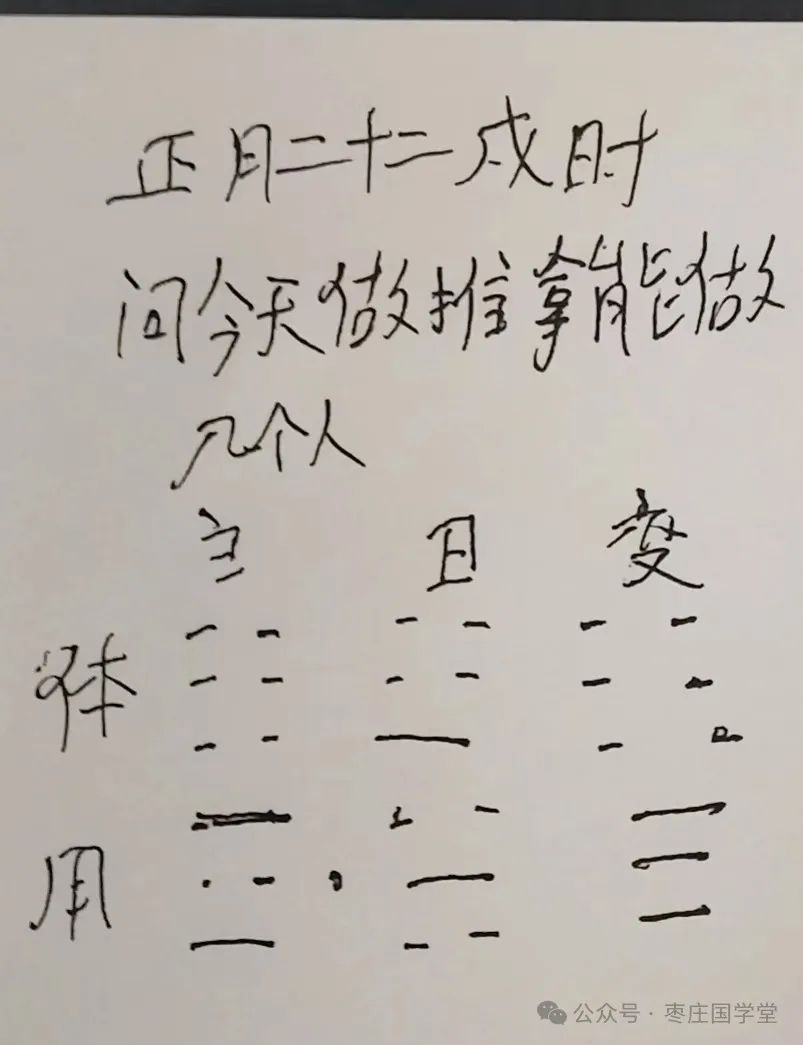 正月二十二戌时
问今天做推拿能做
几个人
主 互 变
体
用
公众号·枣庄国学堂